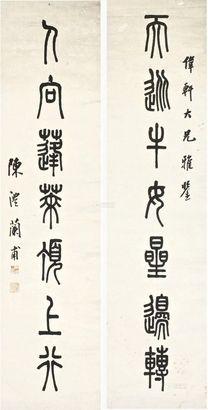 偉軒大兄雅鑒
天逈牛女星邊轉
人向蓬萊頂上行
陳澧蘭甫